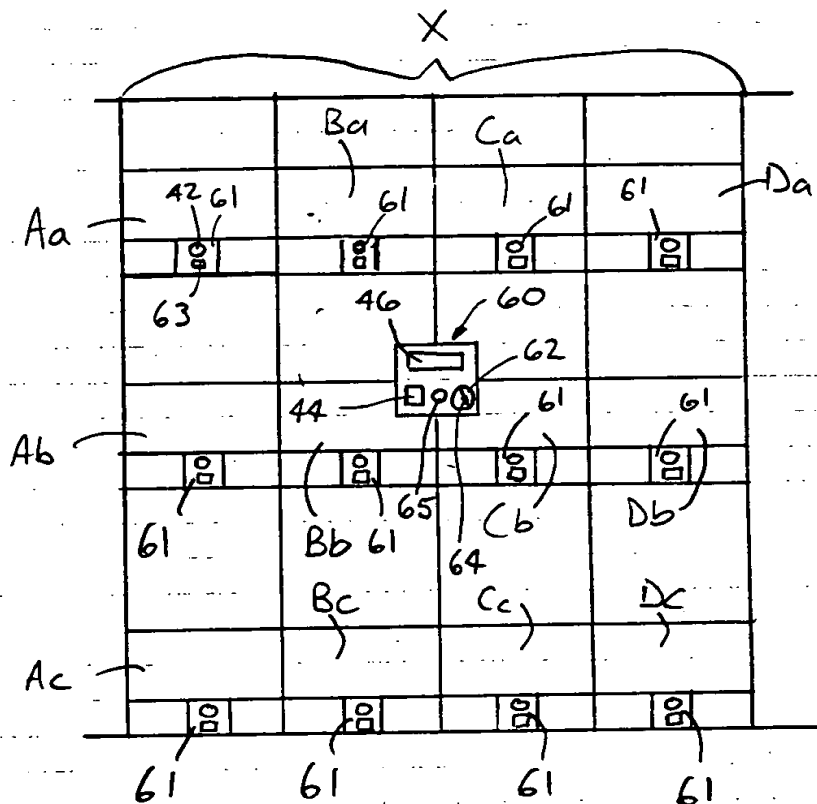 X
Ba Ca
Aa 42 61 61 61 61 Da
63 46 60
62
44 61 61
Ab
61 Bb 61 65 64 Cb Db
Bc Cc Dc
Ac
61 61 61 61